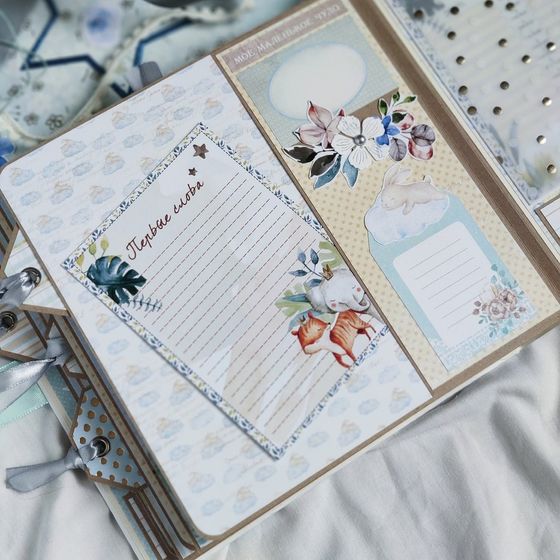 МОЕ МАЛЕНЬКОЕ ЧУДО
Первые слова